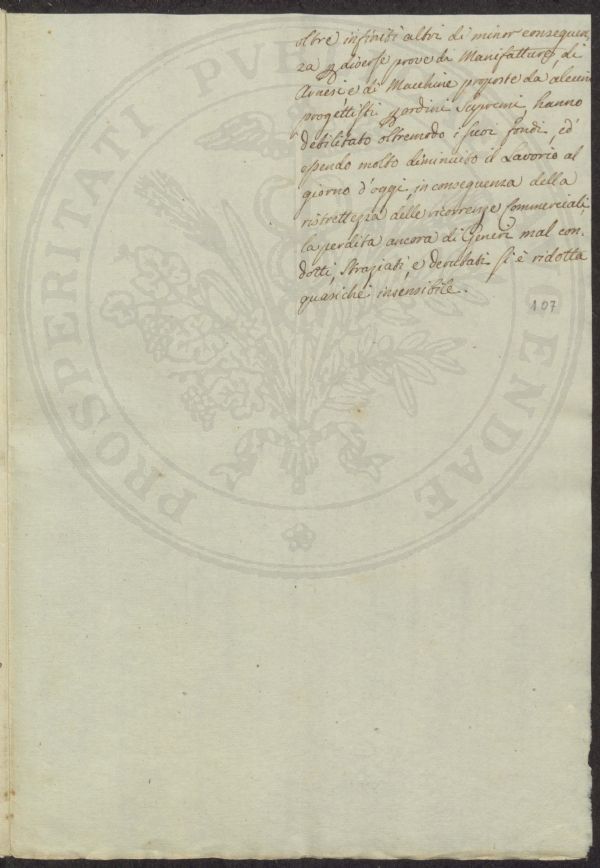 oltre infiniti altri di minor conseguen-
za p diverse prove di Manifatture, di
Arnesi e di Macchine proposte da alcuni
progettisti p ordini Supremi, hanno
debilitato oltremodo i suoi fondi, ed
essendo molto diminuito il Lavorio al
giorno d'oggi, in conseguenza della
ristrettezza delle ricorrenze Commerciali,
la perdita ancora di Generi mal con-
dotti, Straziati, e derubati si è ridotta
quasiche insensibile.
107
PROSPERITATI PVB ENDAE